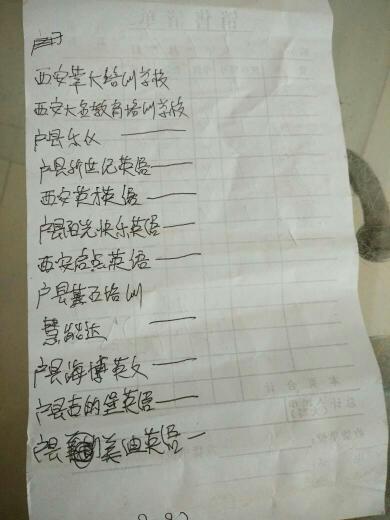 西安莘大培训学校
西安大金教育培训学校
户县乐仪
户县新世纪英语
西安英才英语
户县阳光快乐英语
西安启点英语
户县冀五培训
慧能达
户县海博英文
户县古的堡英语
户县美迪英语